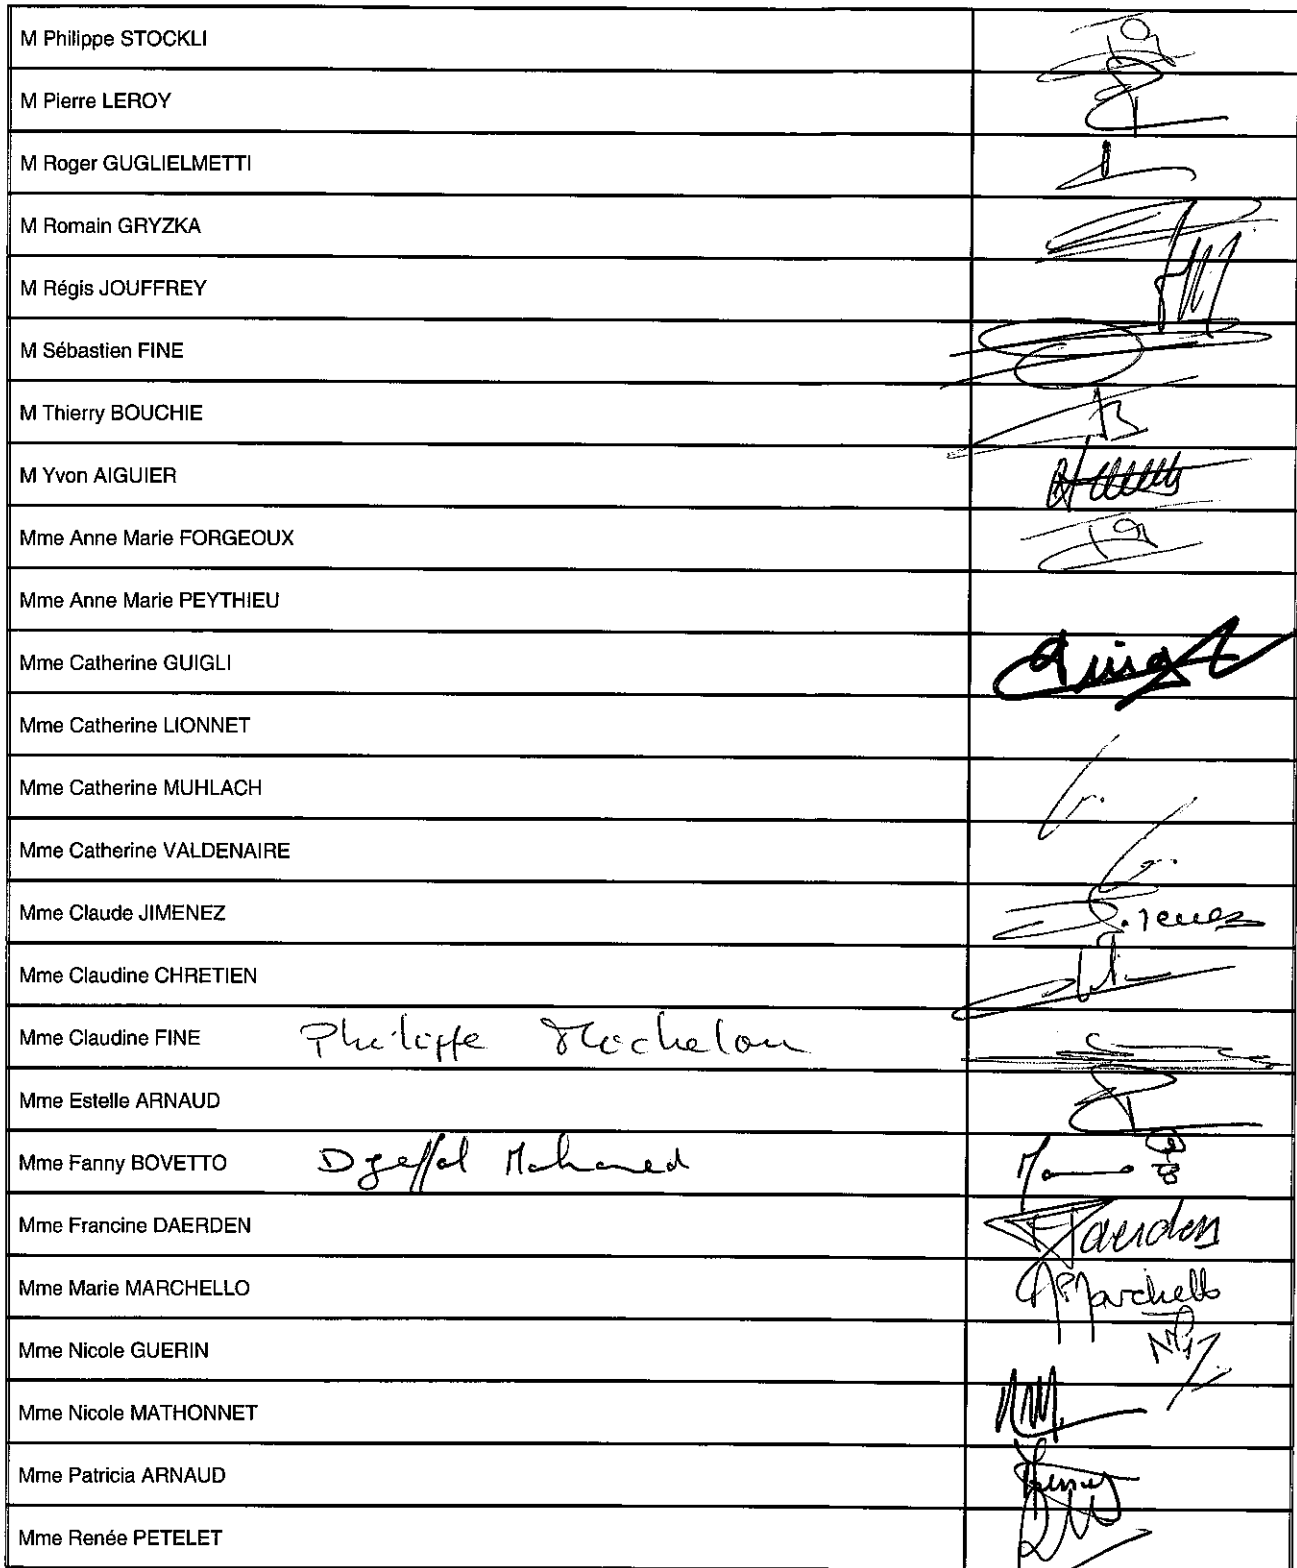 M Philippe STOCKLI
M Pierre LEROY
M Roger GUGLIELMETTI
M Romain GRYZKA
M Régis JOUFFREY
M Sébastien FINE
M Thierry BOUCHIE
M Yvon AIGUIER
Mme Anne Marie FORGEOUX
Mme Anne Marie PEYTHIEU
Mme Catherine GUIGLI
Mme Catherine LIONNET
Mme Catherine MUHLACH
Mme Catherine VALDENAIRE
Mme Claude JIMENEZ
Mme Claudine CHRETIEN
Mme Claudine FINE Philippe Michelon
Mme Estelle ARNAUD
Mme Fanny BOVETTO Djeffal Mohamed
Mme Francine DAERDEN
Mme Marie MARCHELLO
Mme Nicole GUERIN
Mme Nicole MATHONNET
Mme Patricia ARNAUD
Mme Renée PETELET